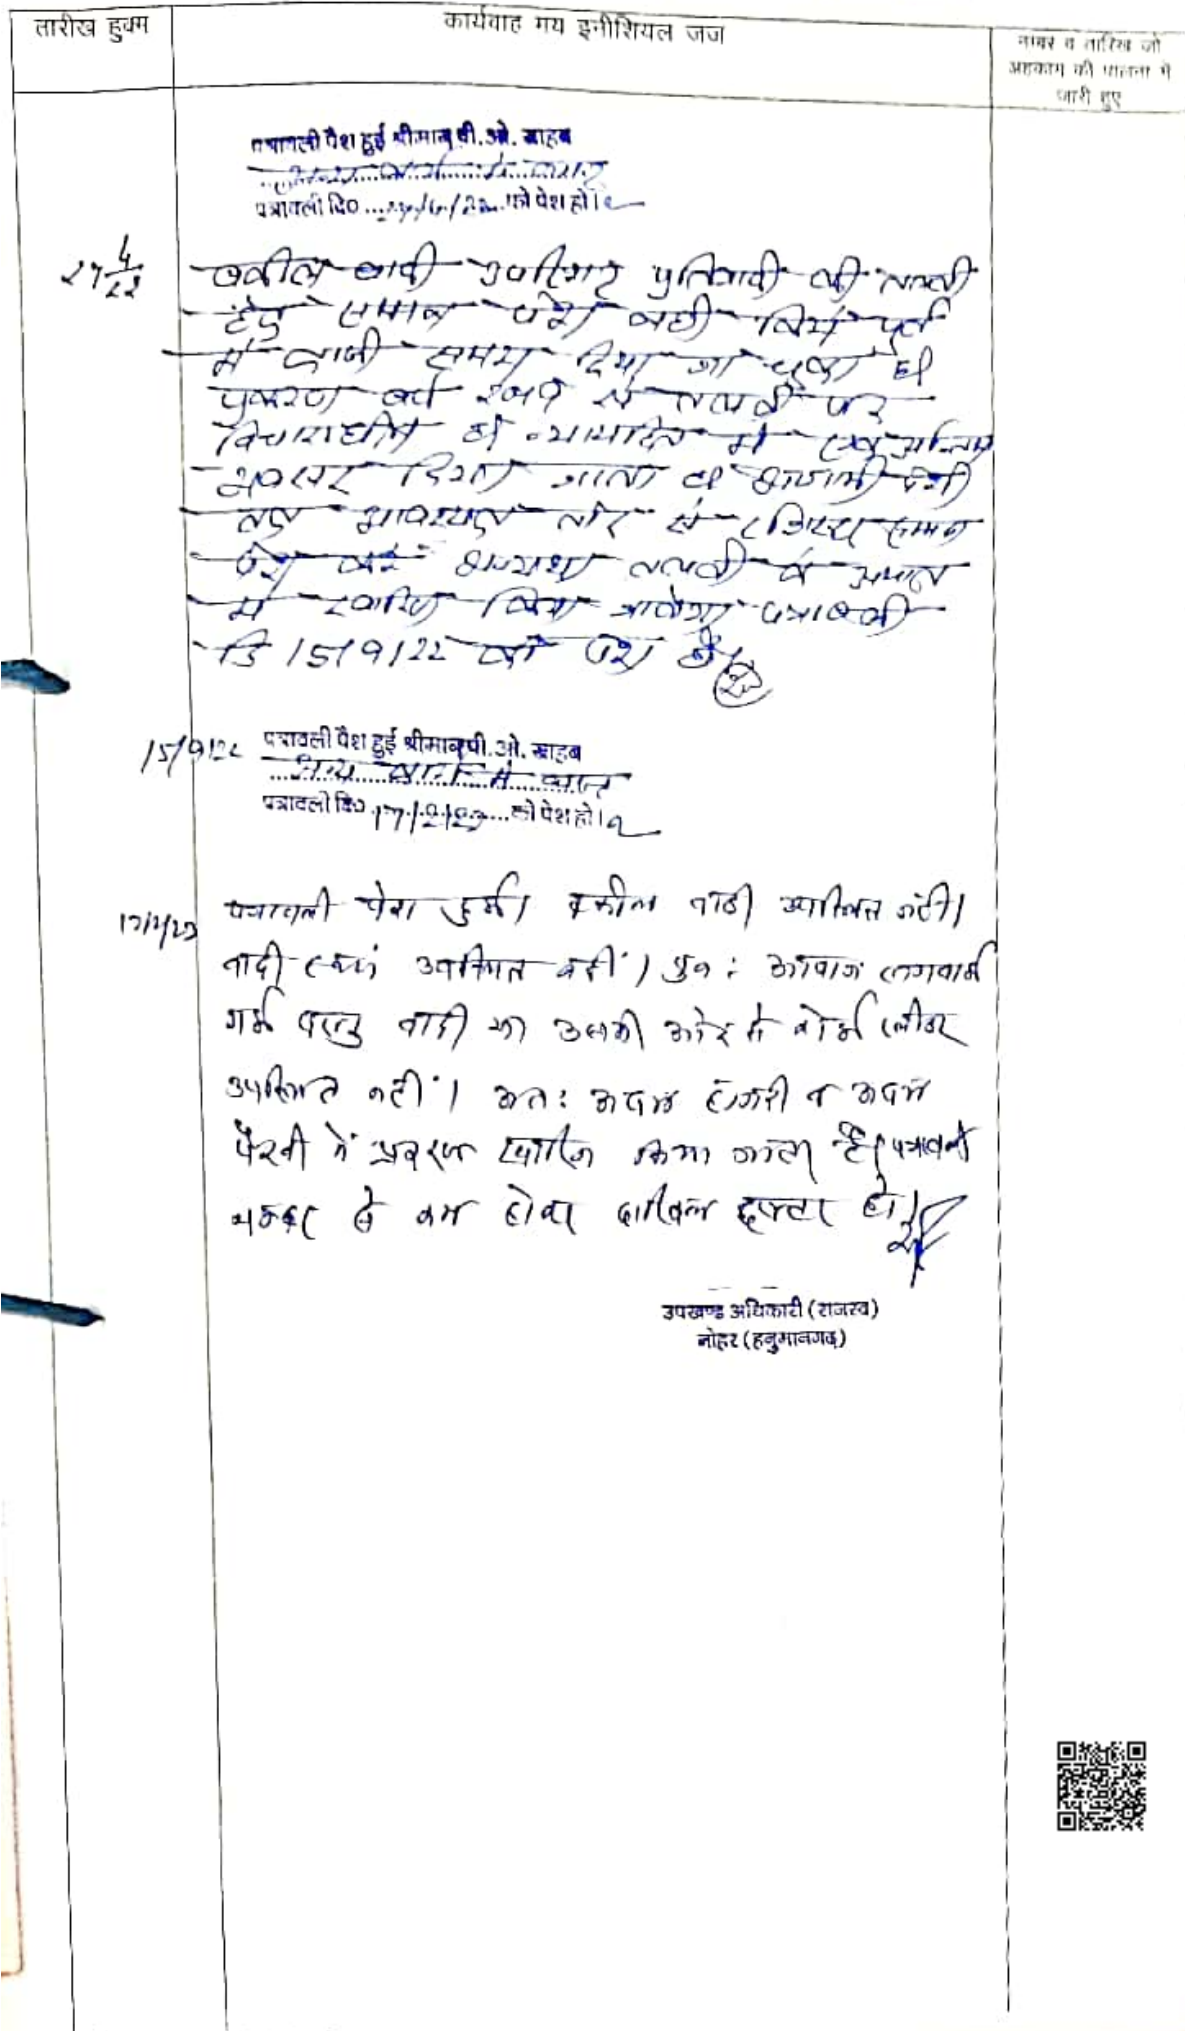 तारीख हुक्म
कार्यवाह मय इनीशियल जज
नम्बर व तारिख जो
अहकाम की पालना में
जारी हुए
पत्रावली पेश हुई श्रीमान पी.ओ. साहब
पत्रावली दि० को पेश हो।
27/4/22
वकील वादी उपस्थित प्रतिवादी की तलबी
हेतु सम्मन पेश नहीं किये पूर्व
में काफी समय दिया जा चुका है।
प्रकरण वर्ष से तलबी पर
विचाराधीन है। न्यायहित में एक अन्तिम
अवसर दिया जाता है आगामी पेशी
तक आवश्यक तौर से रजिस्टर्ड सम्मन
पेश करें अन्यथा तलबी के अभाव
में खारिज किया जावेगा पत्रावली
दि 15/9/22 को पेश हो।
15/9/22
पत्रावली पेश हुई श्रीमान पी.ओ. साहब
अन्य कार्य में व्यस्त
पत्रावली दि० को पेश हो।
पत्रावली पेश हुई। वकील वादी उपस्थित नहीं।
वादी स्वयं उपस्थित नहीं। पुन: आवाज लगवाई
गई परन्तु वादी या उसकी ओर से कोई प्लीडर
उपस्थित नहीं। अत: अदम हाजरी व अदम
पैरवी में प्रकरण खारिज किया जाता है। पत्रावली
नम्बर से कम होकर दाखिल दफ्तर हो।
उपखण्ड अधिकारी (राजस्व)
नोहर (हनुमानगढ़)